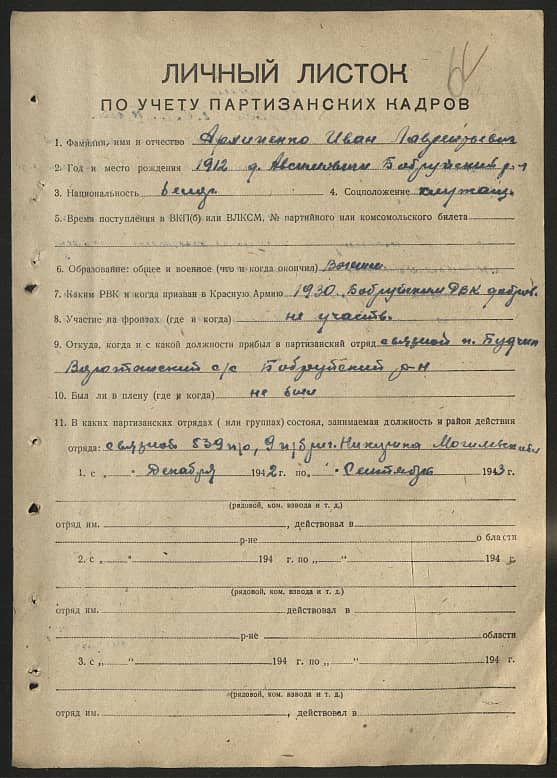 ЛИЧНЫЙ ЛИСТОК
ПО УЧЕТУ ПАРТИЗАНСКИХ КАДРОВ
1. Фамилия, имя и отчество Архипенко Иван Лаврентьевич
2. Год и место рождения 1912 д. Бобруйский р-н
3. Национальность белор. 4. Соцположение служащ.
5. Время поступления в ВКП(б) или ВЛКСМ, № партийного или комсомольского билета
6. Образование: общее и военное (что и когда окончил) Высшее
7. Каким РВК и когда призван в Красную Армию 1930. Бобруйским РВК добров.
8. Участие на фронтах (где и когда) не участв.
9. Откуда, когда и с какой должности прибыл в партизанский отряд связной п.
с/с Бобруйский р-н
10. Был ли в плену (где и когда) не был
11. В каких партизанских отрядах ( или группах) состоял, занимаемая должность и район действия
отряда: связной 539 п/о, 9 п/бриг. Могилевский
1. с „ " Декабря 1942 г. по „ " Сентябрь 1943 г.
(рядовой, ком. взвода и т. д.)
отряд им. , действовал в
р-не области
2. с „ " 194 г. по „ " 194 г.
(рядовой, ком. взвода и т. д.)
отряд им. действовал в
р-не области
3. с „ " 194 г. по „ " 194 г.
(рядовой, ком. взвода и т. д.)
отряд им. , действовал в